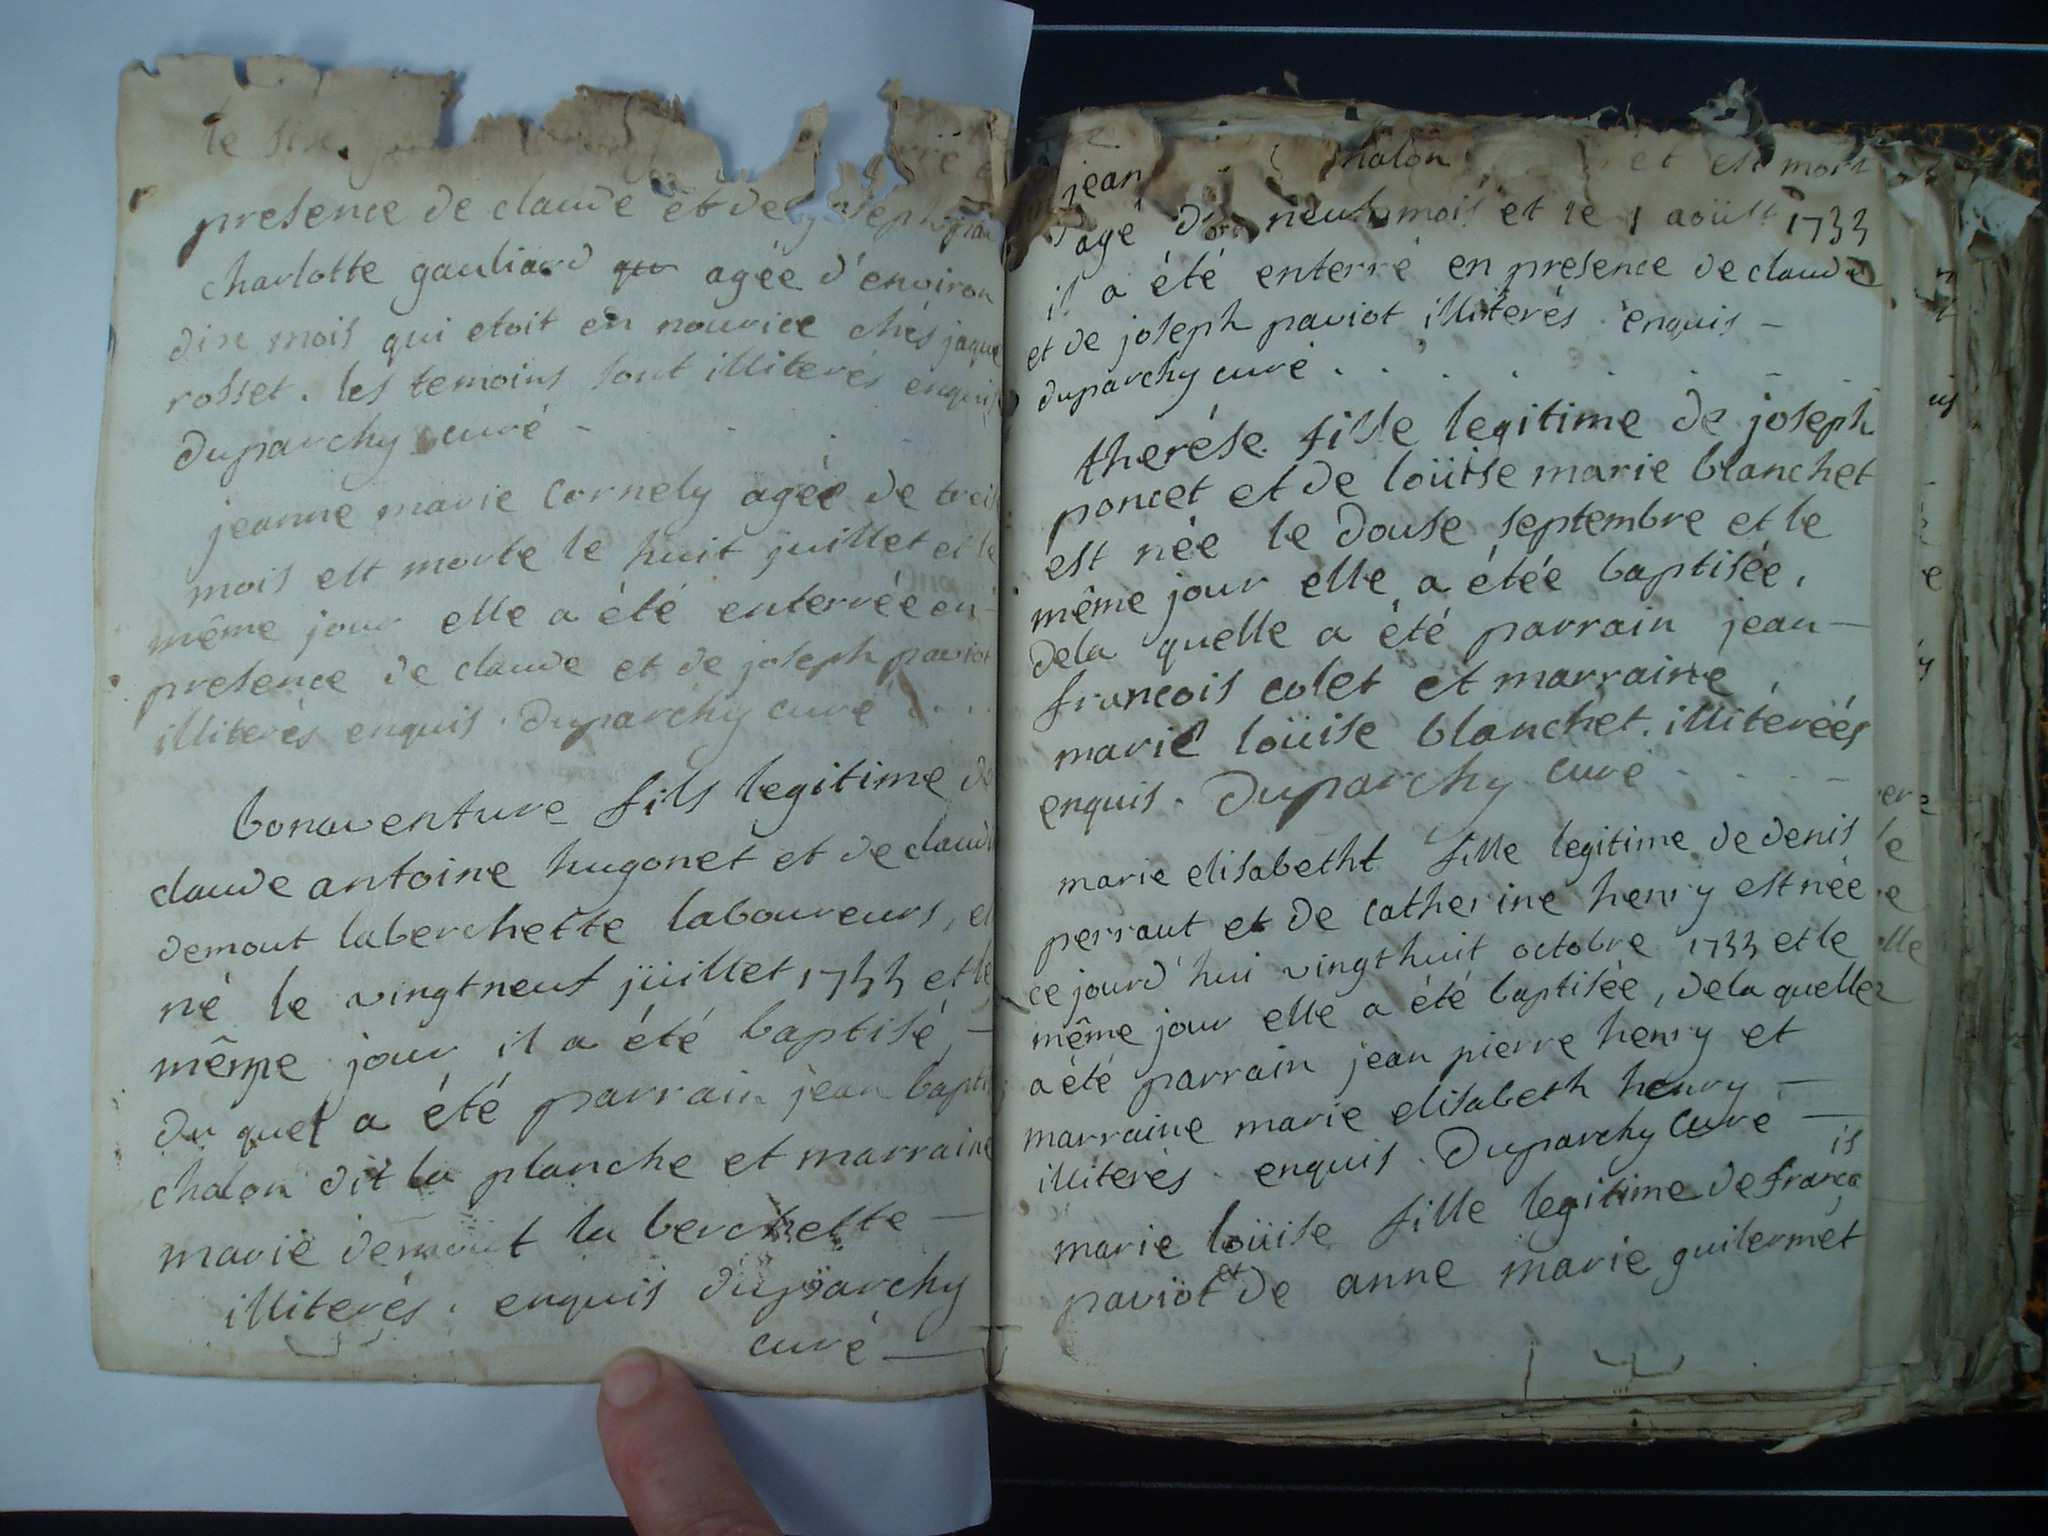 le six
presence de claude et de joseph pav
charlotte gauliard agée d'environ
dix mois qui etoit en nourice chés jaque
rosset. les temoins sont illiterés enquis
duparchy curé
jeanne marie cornely agée de treize
mois est morte le huit juillet et le
même jour elle a été enterrée en
presence de claude et de joseph paviot
illiterés enquis. duparchy curé
bonaventure fils legitime de
claude antoine hugonet et de claud
demout laberchette laboureurs, e
né le vingtneuf juillet 1733 et le
même jour il a été baptisé,
du quel a été parrain jean bapti
chalon dit la planche et marraine
marie demout la berchette
illiterés. enquis duparchy
curé
jean halon et est mort
agé d' neuf mois et le 1 aoüst 1733
il a été enterré en presence de claude
et de joseph paviot illiterés enquis
duparchy curé
therése fille legitime de joseph
poncet et de loüise marie blanchet
est née le douse septembre et le
même jour elle a étée baptisée,
dela quelle a été parrain jean
francois colet et marraine
marie loüise blanchet. illiterées
enquis. Duparchy curé
marie elisabetht fille legitime de denis
perraut et de catherine henry est née
ce jourd'hui vingthuit octobre 1733 et le
même jour elle a été baptisée, dela quelle
a été parrain jean pierre henry et
marraine marie elisabeth henry
illiterés. enquis. Duparchy curé
marie loüise fille legitime de françois
paviot et de anne marie guilermet